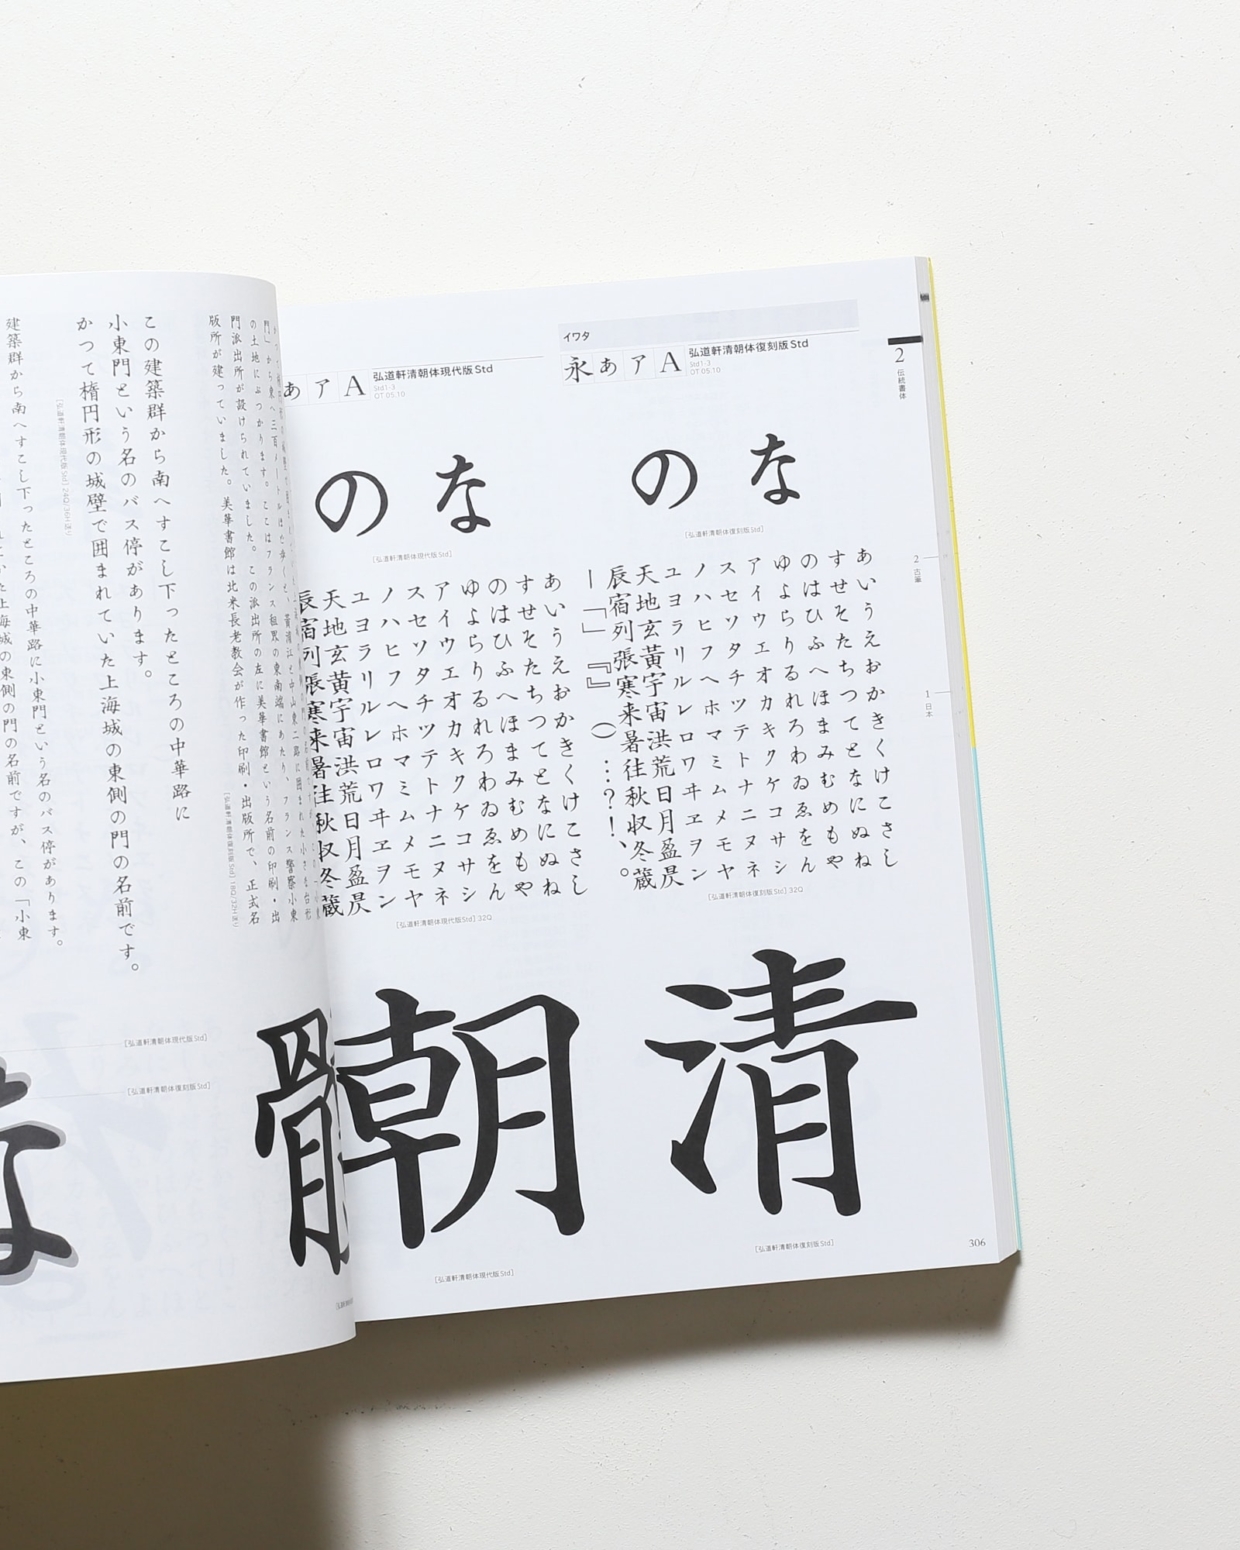 2
伝統書体
2 古筆
1 日本
イワタ
永あアA
弘道軒清朝体復刻版Std
Std1-3
OT 05.10
なの
[弘道軒清朝体復刻版Std]
あいうえおかきくけこさし
すせそたちつてとなにぬね
のはひふへほまみむめもや
ゆよらりるれろわゐゑをん
アイウエオカキクケコサシ
スセソタチツテトナニヌネ
ノハヒフヘホマミムメモヤ
ユヨラリルレロワヰヱヲン
天地玄黄宇宙洪荒日月盈昃
辰宿列張寒来暑往秋収冬蔵
ー「」『』（）…？！、。
[弘道軒清朝体復刻版Std] 32Q
清
[弘道軒清朝体復刻版Std]
306
あアA
弘道軒清朝体現代版Std
Std1-3
OT 05.10
なの
[弘道軒清朝体現代版Std]
あいうえおかきくけこさし
すせそたちつてとなにぬね
のはひふへほまみむめもや
ゆよらりるれろわゐゑをん
アイウエオカキクケコサシ
スセソタチツテトナニヌネ
ノハヒフヘホマミムメモヤ
ユヨラリルレロワヰヱヲン
天地玄黄宇宙洪荒日月盈昃
辰宿列張寒来暑往秋収冬蔵
[弘道軒清朝体現代版Std] 32Q
朝
[弘道軒清朝体現代版Std]
の土地にぶつかります。ここはフランス租界の東南端にあたり、フランス警察小東
門派出所が設けられていました。この派出所の左に美華書館という名前の印刷・出
版所が建っていました。美華書館は北米長老教会が作った印刷・出版所で、正式名
[弘道軒清朝体復刻版Std] 18Q/32H送り
この建築群から南へすこし下ったところの中華路に
小東門という名のバス停があります。
かつて楕円形の城壁で囲まれていた上海城の東側の門の名前です。
[弘道軒清朝体現代版Std] 24Q/36H送り
建築群から南へすこし下ったところの中華路に小東門という名のバス停があります。
上海城の東側の門の名前ですが、この「小東
[弘道軒清朝体現代版Std]
[弘道軒清朝体復刻版Std]
な